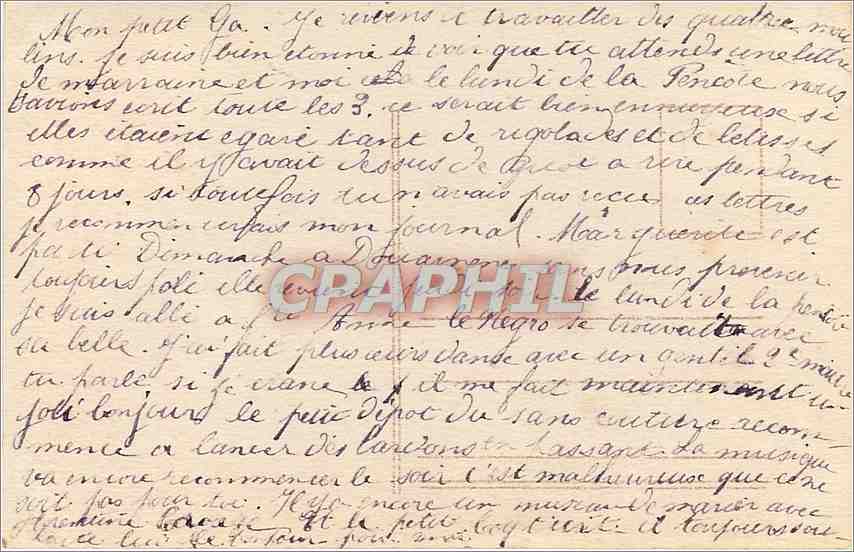 Mon petit Ga. Je reviens de travailler des quatre mou
lins. je suis bien étonné de voir que tu attends une lettre
de marraine et moi le lundi de la Pencôte nous
t'avions écrit toute les 3. ce serait bien ennuyeuse si
elles étaient egaré tant de rigolades et de betisses
comme il y avait dessus de quoi a rire pendant
8 jours. si toutefois tu n'avais pas recu ces lettres
je recommencerais mon journal. Marguerite est
parti Dimanche a Douarnenez sans nous prevenir
toujours poli elle revient le lundi de la pencôte
je suis allé a Ste Anne le Negro se trouvait avec
sa belle. J'ai fait plusieurs danse avec un gentil 2e maitre
tu parle si je crane il me fait maintenant un
joli bonjours le petit dépot du sans couture recom-
mence a lancer des lardons en passant. La musique
va encore recommencer le soir c'est malheureuse que ce ne
soit pas pour toi. Il y a encore un de marier avec
et le petit toujours
CPARPHIL